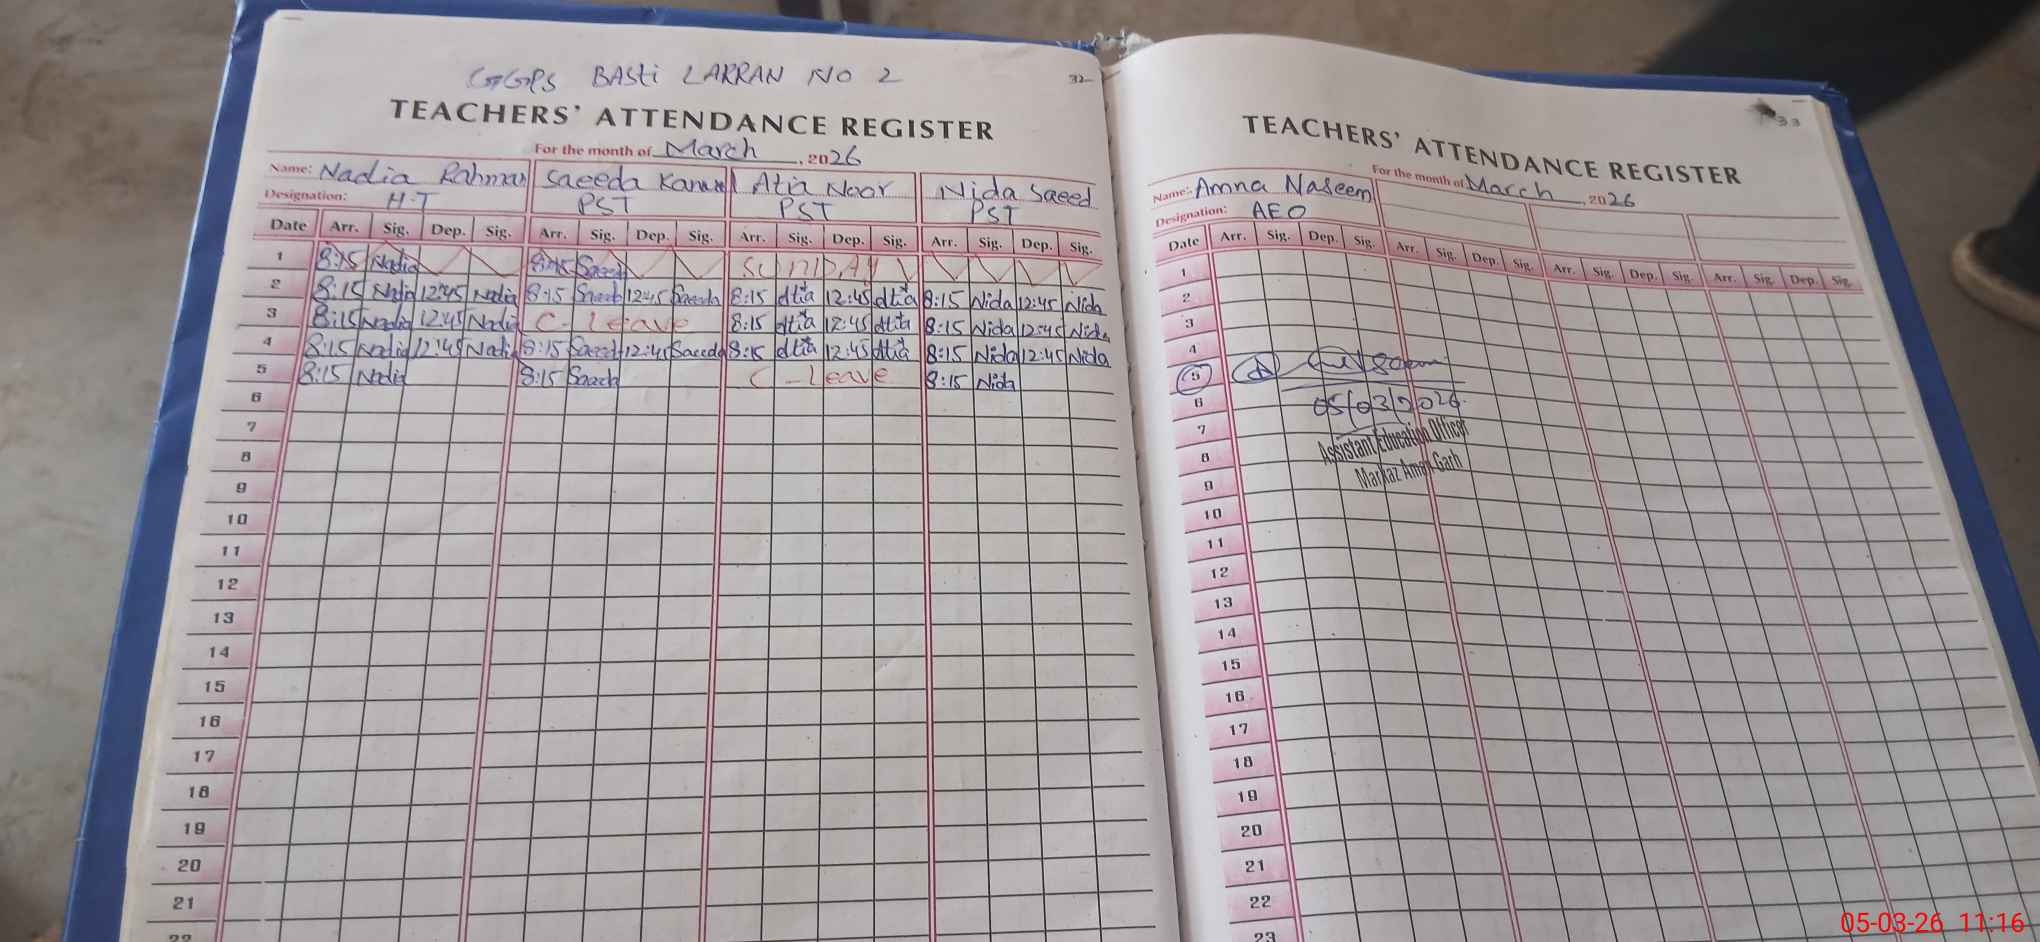 GGPS BASti LARRAN NO 2
32
TEACHERS' ATTENDANCE REGISTER
For the month of March, 2026
Name: Nadia Rahman Saeeda Kanwal Atia Noor Nida Saeed
Designation: H.T PST PST PST
Date Arr. Sig. Dep. Sig. Arr. Sig. Dep. Sig. Arr. Sig. Dep. Sig. Arr. Sig. Dep. Sig.
1 8:15 Nadia 8:15 Saeed SUNDAY
2 8:15 Nadia 12:45 Nadia 8:15 Saeeda 12:45 Saeeda 8:15 Atia 12:45 Atia 8:15 Nida 12:45 Nida
3 8:15 Nadia 12:45 Nadia C-Leave 8:15 Atia 12:45 Atia 8:15 Nida 12:45 Nida
4 8:15 Nadia 12:45 Nadia 8:15 Saeeda 12:45 Saeeda 8:15 Atia 12:45 Atia 8:15 Nida 12:45 Nida
5 8:15 Nadia 8:15 Saeeda C-Leave 8:15 Nida
6
7
8
9
10
11
12
13
14
15
16
17
18
19
20
21
22
33
TEACHERS' ATTENDANCE REGISTER
For the month of March, 2026
Name: Amna Naseem
Designation: AEO
Date Arr. Sig. Dep. Sig. Arr. Sig. Dep. Sig. Arr. Sig. Dep. Sig. Arr. Sig. Dep. Sig.
1
2
3
4
5
6 05/03/2026
7 Assistant Education Officer
8 Markaz Aman Garh
9
10
11
12
13
14
15
16
17
18
19
20
21
22
23
05-03-26 11:16